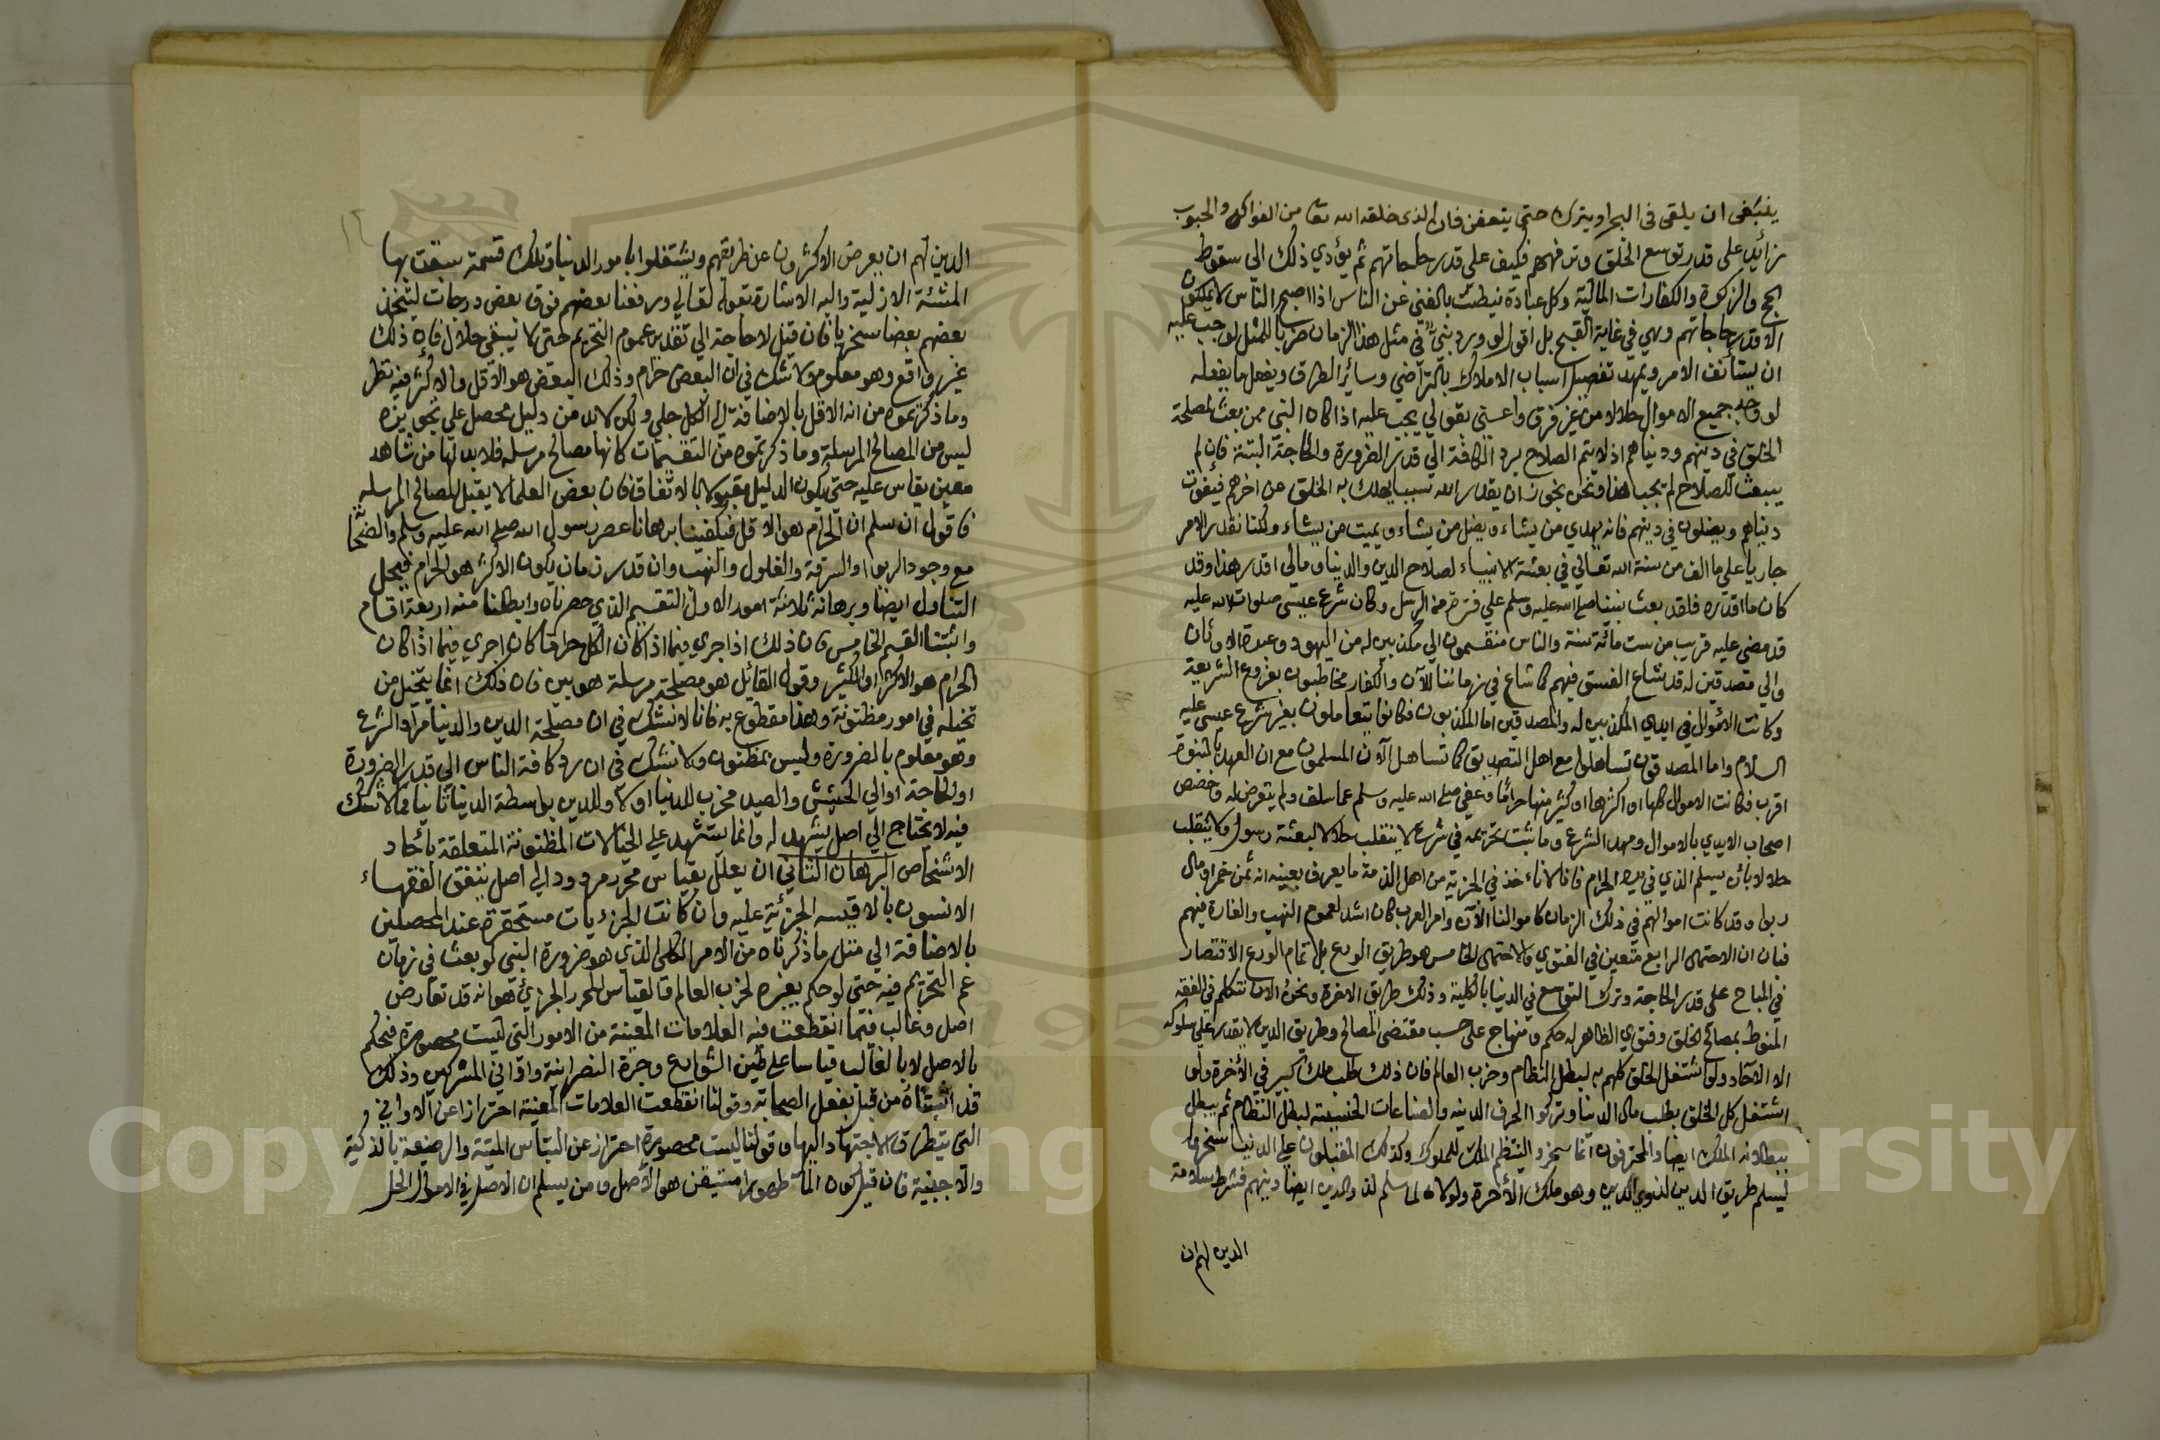 ينبغى ان يلقى فى البحر او يترك حتى يتعفن فان الذى خلقه الله تعا من الفواكه والحبوب
زائد على قدر توسع الخلق وترفههم فكيف على قدر حاجاتهم ثم يؤدي ذلك الى سقوط
الحج والزكوة والكفارات المالية وكل عبادة نيطت بالغني عن الناس اذا اصبح الناس لا يملكون
الا قدر حاجاتهم وهي في غاية القبح بل اقول لو ورد نبي في مثل هذا الزمان ضربا للمثل لوجب عليه
ان يستأنف الامر ويمهد تفصيل اسباب الاملاك بالتراضي وسائر الطرق ويفعل ما يفعله
لو وجد جميع الاموال حلالا من غير فرق واعني بقولي يجب عليه اذا كان النبي ممن بعث لمصلحة
الخلق في دينهم ودنياهم اذ لا يتم الصلاح برد الكافة الي قدر الضرورة والحاجة البتة فان لم
يبعث للصلاح لم يجب هذا ونحن نجوز ان يقدر الله سببا يهلك به الخلق عن اخرهم فيفوت
دنياهم ويضلون في دينهم فانه يهدي من يشاء ويضل من يشاء ويميت من يشاء ولكنا نقدر الامر
جاريا على ما الف من سنة الله تعالي في بعثة الانبياء لصلاح الدين والدنيا ومالي اقدر هذا وقد
كان ما اقدره فلقد بعث نبينا صلى الله عليه وسلم على فترة من الرسل وكان شرع عيسى صلوات الله عليه
قد مضى عليه قريب من ست مائة سنة والناس منقسمون الي مكذبين له من اليهود وعبدة الاوثان
والي مصدقين له قد شاع الفسق فيهم كما شاع في زماننا الآن والكفار مخاطبون بفروع الشريعة
وكانت الاموال في ايدي المكذبين له والمصدقين اما المكذبون فكانوا يتعاملون بغير شرع عيسى عليه
السلام واما المصدقون تساهلوا مع اهل التصديق كما تساهل الآن المسلمون مع ان العهد بالنبوة
اقرب فكانت الاموال كلها او اكثرها او كثير منها حراما وعفى صلى الله عليه وسلم عما سلف ولم يتعرض له وخصص
اصحاب الايدي بالاموال ومهد الشرع وما ثبت تحريمه في شرع لا ينقلب حلالا لبعثة رسول ولا ينقلب
حلالا بان يسلم الذي في يده الحرام فانا لا ناء خذ في الجزية من اهل الذمة ما يعرف بعينه انه ثمن خمر او مال
ربوا وقد كانت اموالهم في ذلك الزمان كاموالنا الآن وامر العرب كان اشد لعموم النهب والغارة فيهم
فبان ان الاحتمال الرابع متعين في الفتوي والاحتمال الخامس هو طريق الورع بل تمام الورع الاقتصار
في المباح على قدر الحاجة وترك التوسع في الدنيا بالكلية وذلك طريق الاخرة ونحن الان نتكلم في الفقه
المنوط بمصالح الخلق وفتوي الظاهر له حكم ومنهاج على حسب مقتضى المصالح وطريق الدين لا يقدر على سلوكه
الا الآحاد ولو اشتغل الخلق كلهم به لبطل النظام وخرب العالم فان ذلك طلب ملك كبير في الأخرة ولو
اشتغل كل الخلق بطلب مال الدنيا وتركوا الحرف الدنيه والصناعات الخسيسة لبطل النظام ثم يبطل
ببطلانه الملك ايضا والمحترفون انما سخروا لينتظم الملك للملوك وكذلك المقبلون على الدنيا سخروا
ليسلم طريق الدين لذوي الدين وهو ملك الأخرة ولولاه لما سلم لذوي الدين ايضا دينهم فشرط سلامة
الدين لهم ان
الدين لهم ان يعرض الاكثرون عن طريقهم ويشتغلوا بامور الدنيا وتلك قسمة سبقت بها
المشئة الازلية واليه الاشارة بقوله تعالي ورفعنا بعضهم فوق بعض درجات ليتخذ
بعضهم بعضا سخريا فان قيل لا حاجة الي تقدير عموم التحريم حتى لا يبقى حلال فان ذلك
غير واقع وهو معلوم ولا شك في ان البعض حرام وذلك البعض هو الاقل والاكثر فيه نظر
وما ذكرتموه من انه الاقل بالاضافة الي الكل جلي ولكن لا بد من دليل محصل على تجويزه
ليس من المصالح المرسلة وما ذكرتموه من التقسيمات كانها مصالح مرسله فلا بد لها من شاهد
معين يقاس عليه حتى يكون الدليل مقبولا بالاتفاق فان بعض العلما لا يقبل المصالح المرسله
فاقول ان سلم ان الحرام هو الاقل فيكفينا برهانا عصر رسول الله صلى الله عليه وسلم والصحابة
مع وجود الربوا والسرقة والغلول والنهب وان قدر زمان يكون الاكثر هو الحرام فيحل
التناول ايضا وبرهانه ثلاثة امور الاول التقسيم الذي حصرناه وابطلنا منه اربعة اقسام
واثبتنا القسم الخامس فان ذلك اذا اجري فيما اذا كان الكل حراما كان اجري فيما اذا كان
الحرام هو الاكثر او الكثير وقول القائل هو مصلحة مرسلة هوس فان ذلك انما يتخيل من
تخيله في امور مظنونة وهذا مقطوع به فانا لا نشك في ان مصلحة الدين والدنيا مراد الشرع
وهو معلوم بالضرورة وليس بمظنون ولا نشك في ان رد كافة الناس الي قدر الضرورة
او الحاجة او الي الحشيش والصيد مخرب للدنيا اولا وللدين بواسطة الدنيا ثانيا فما لا نشك
فيه لا يحتاج الي اصل يشهد له وانما يستشهد علي الخيالات المظنونة المتعلقة بأحاد
الاشخاص البرهان الثاني ان يعلل بقياس محرر مردود الي اصل يتفق الفقهاء
الانسون بالاقيسه الجزئية عليه وان كانت الجزئيات مستحقرة عند المحصلين
بالاضافة الي مثل ما ذكرناه من الامر الكلي الذي هو ضرورة النبي لو بعث في زمان
عم التحريم فيه حتى لو حكم بغيره لخرب العالم فالقياس المحرر الجزئي هو انه قد تعارض
اصل وغالب فيما انقطعت فيه العلامات المعينة من الامور التي ليست محصورة فنحكم
بالاصل لا بالغالب قياسا على طين الشوارع وجرة النصرانية واواني المشركين وذلك
قد اثبتناه من قبل بفعل الصحابة وقولنا انقطعت العلامات المعينة احترازا عن الاواني
التى يتطرق الاجتهاد اليها وقولنا ليست محصورة احتراز عن التباس الميتة والرضيعة بالذكية
والاجنبية فان قيل كون الما طهورا متيقن هو الأصل ومن يسلم ان الاصل في الاموال الحل